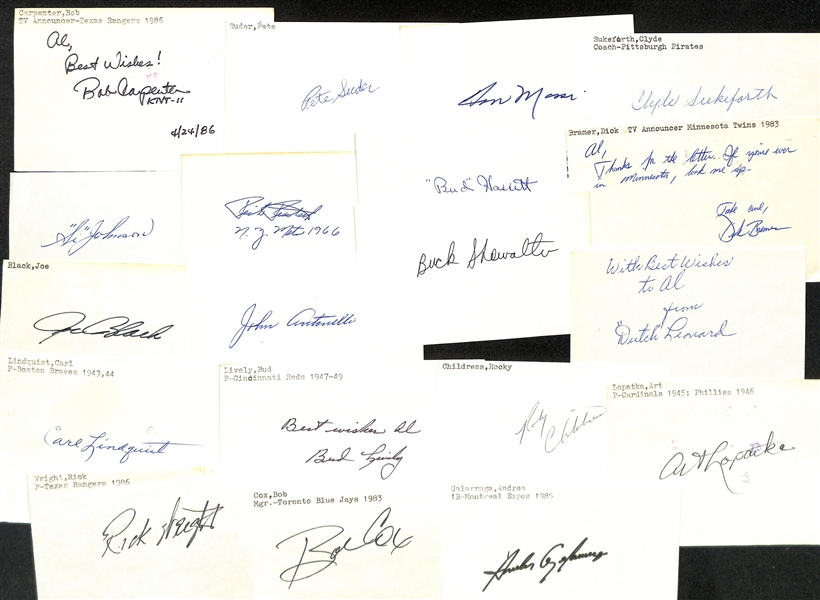 Carpenter,Bob
TV Announcer-Texas Rangers 1986
Al,
Best Wishes!
Bob Carpenter
KNT-11
4/24/86
Suder, Pete
Pete Suder
Sukeforth,Clyde
Coach-Pittsburgh Pirates
Clyde Sukeforth
Bramer,Dick TV Announcer Minnesota Twins 1983
Al,
Thanks for the letter. If you're ever
in Minnesota, look me up-
Take care,
Dick Bremer
"Si" Johnson
N.Y. Mets 1966
"Bud" Hassett
Buck Showalter
With Best Wishes
to Al
from
"Dutch" Leonard
Black,Joe
Joe Black
John Antonelli
Lindquist,Carl
P-Boston Braves 1943,44
Carl Lindquist
Lively,Bud
P-Cincinnati Reds 1947-49
Best wishes Al
Bud Lively
Childress,Rocky
Lopatka,Art
P-Cardinals 1945: Phillies 1946
Art Lopatka
Wright,Rick
P-Texas Rangers 1986
Rick Wright
Cox,Bob
Mgr.-Toronto Blue Jays 1983
Bob Cox
Galarraga,Andres
1B-Montreal Expos 1985